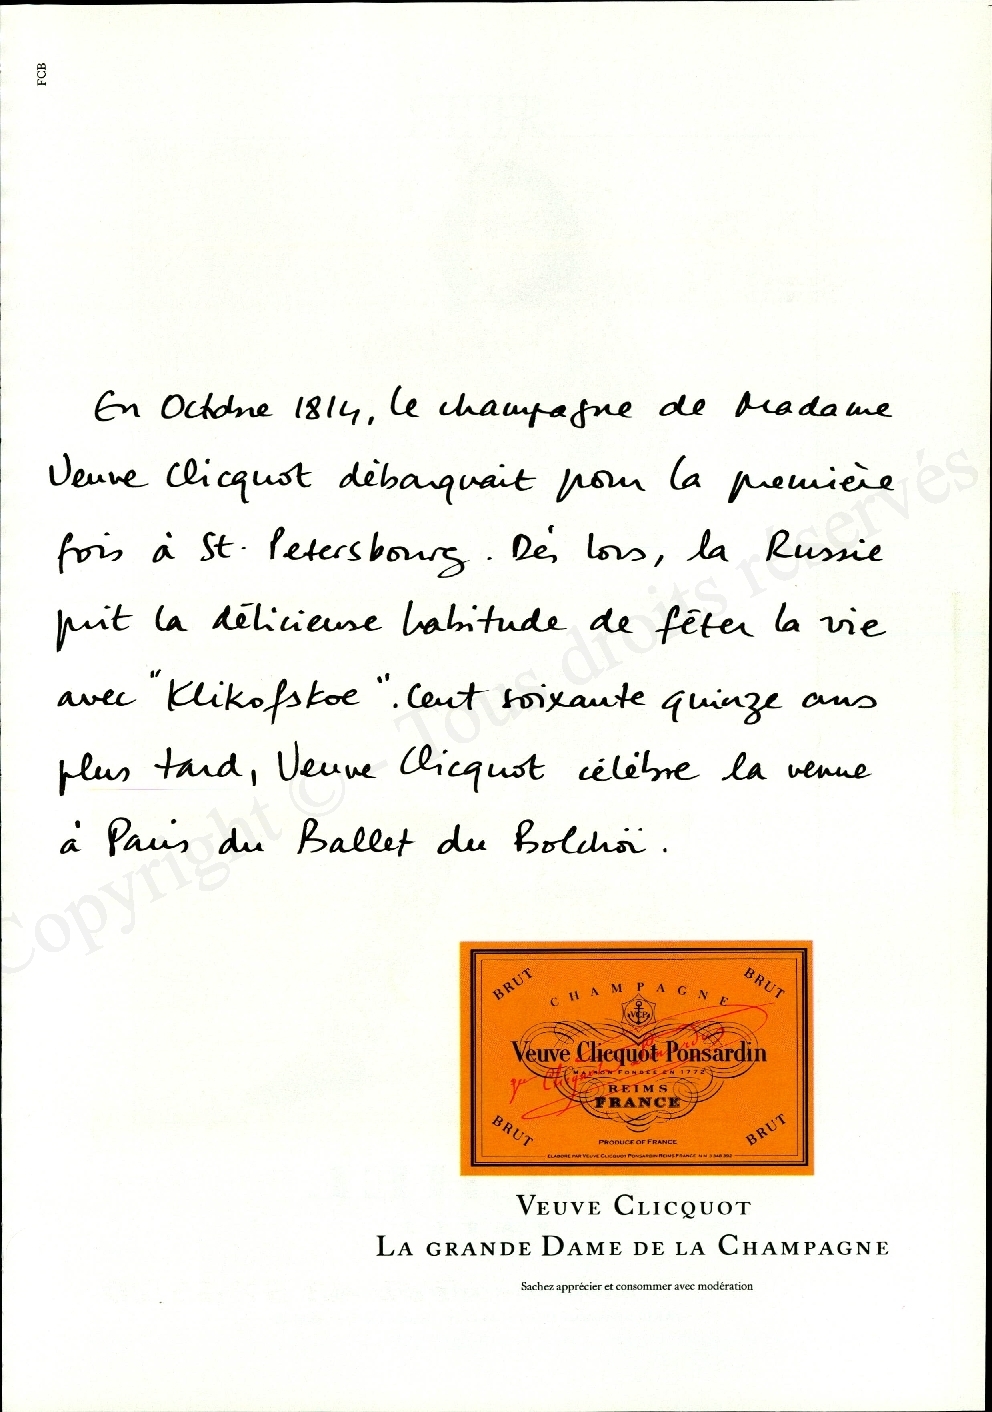 FCB
En Octobre 1814, le champagne de Madame
Veuve Clicquot débarquait pour la première
fois à St. Petersbourg. Dès lors, la Russie
prit la délicieuse habitude de fêter la vie
avec "Klikofskoe". Cent soixante quinze ans
plus tard, Veuve Clicquot célèbre la venue
à Paris du Ballet du Bolchoï.
Copyright © - Tous droits réservés
BRUT BRUT
CHAMPAGNE
VCP
Veuve Clicquot Ponsardin
MAISON FONDÉE EN 1772
REIMS
FRANCE
BRUT BRUT
PRODUCE OF FRANCE
ELABORÉ PAR VEUVE CLICQUOT PONSARDIN REIMS FRANCE
VEUVE CLICQUOT
LA GRANDE DAME DE LA CHAMPAGNE
Sachez apprécier et consommer avec modération